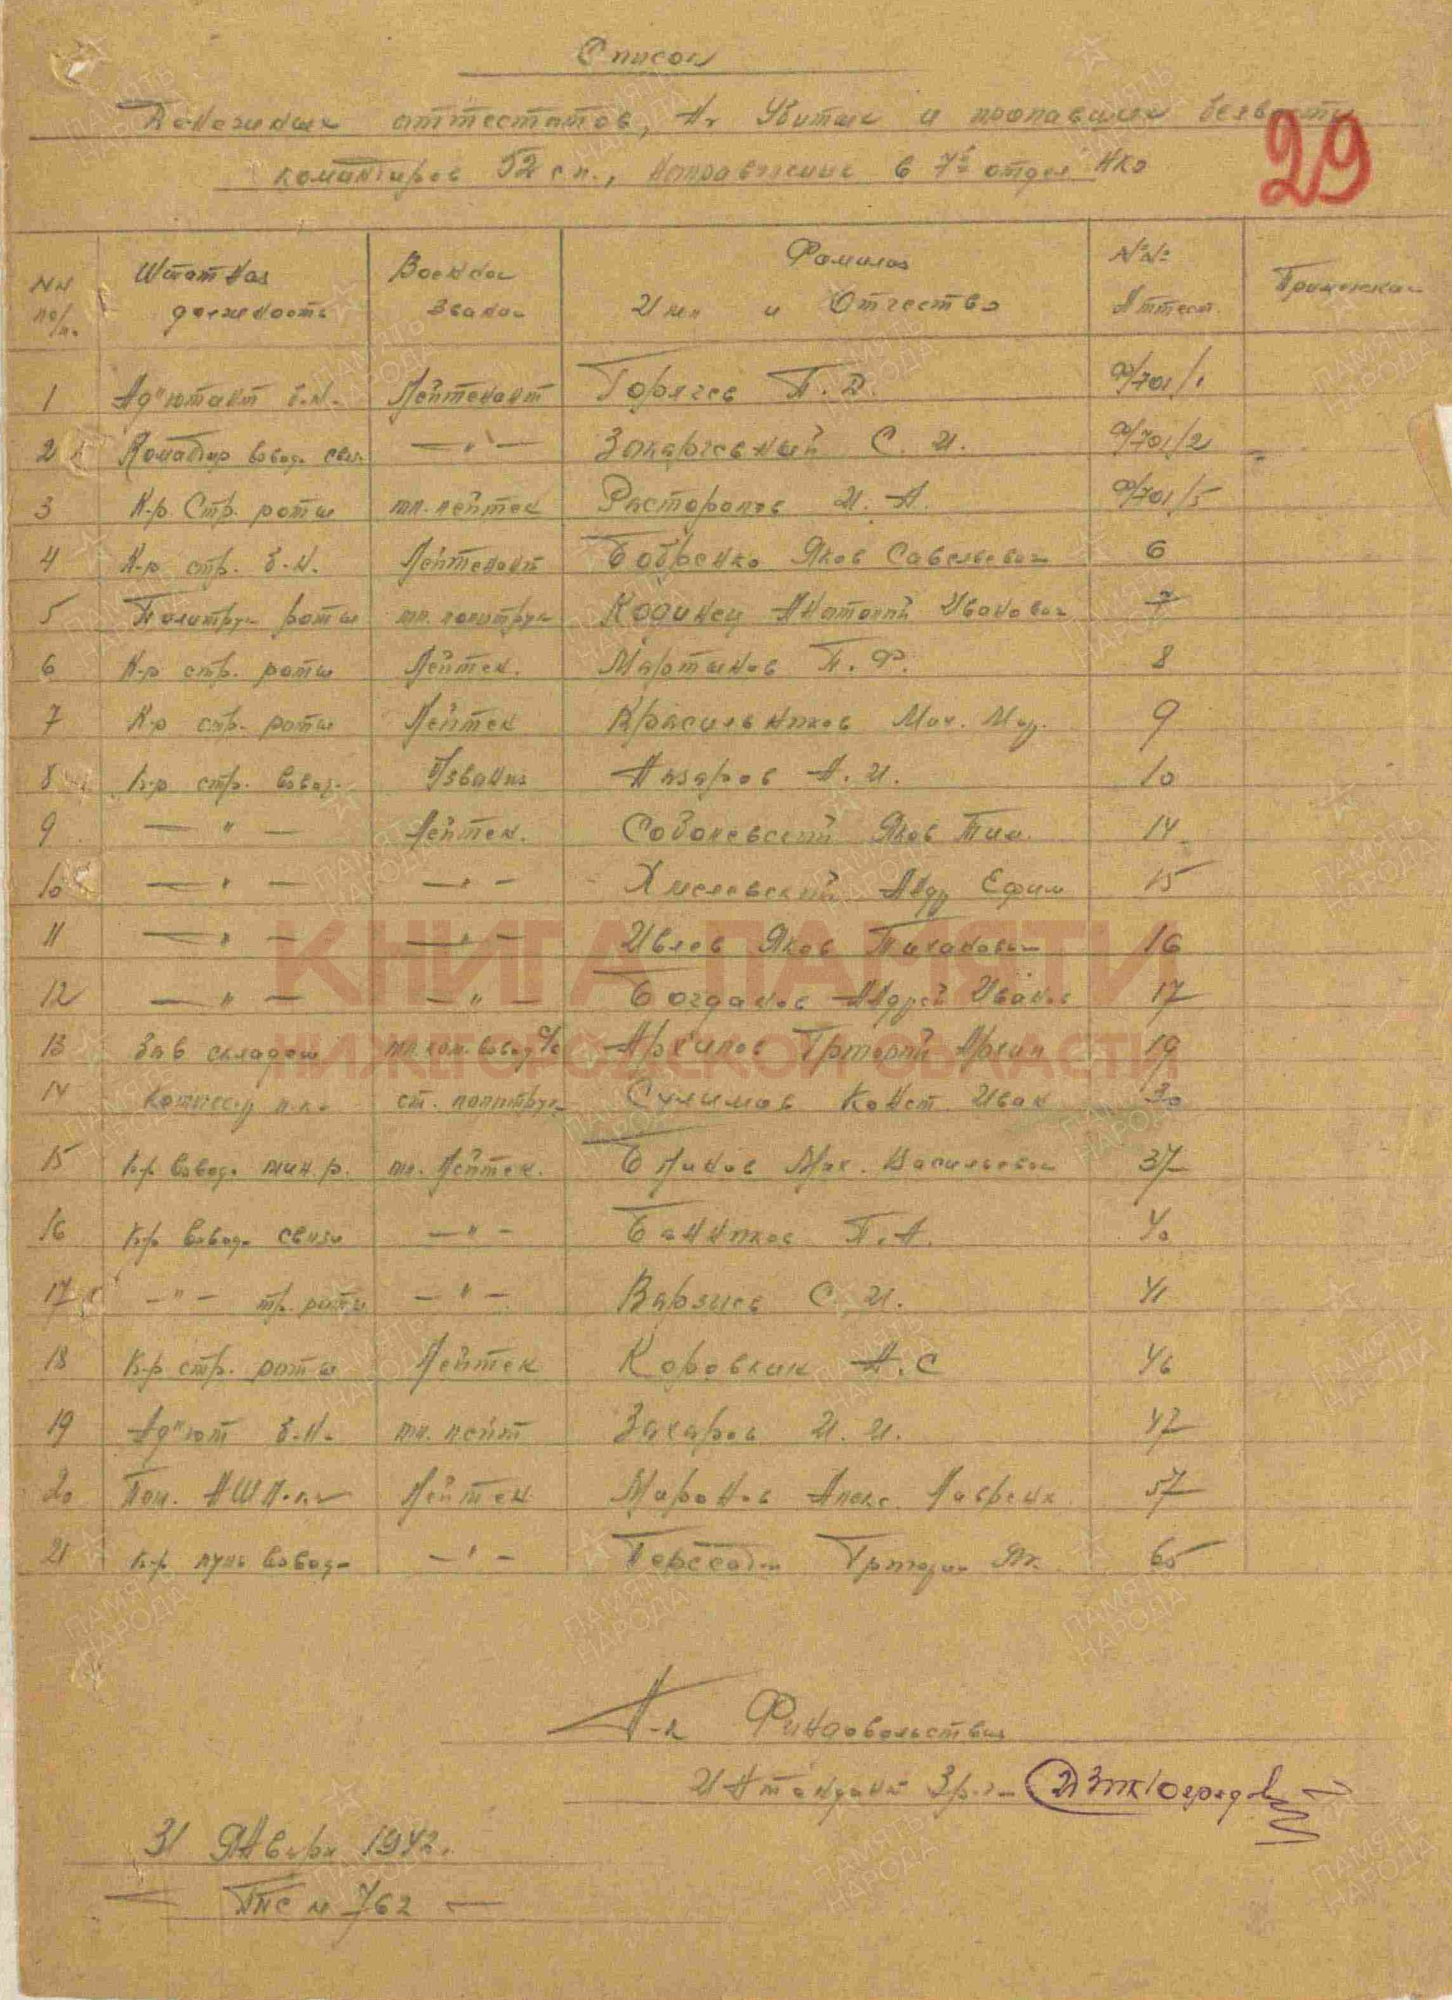 Список
Денежных аттестатов, на Убитых и пропавших безвести
29
командиров 52 сп., направленные в 7й отдел НКО
NN по/п. Штатная должность Военное Звание Фамилия Имя и Отчество №№ Аттест. Примечание
1 Ад"ютант б-на. Лейтенант Горячев П. Д. Ф/701/1
2 Командир взвода связ. —"— С. И. Ф/701/2
3 К-р Стр. роты мл. лейтен Расторопов И. А. Ф/701/5
4 К-р стр. б-на. Лейтенант Бобренко Яков Савельевич 6
5 Политрук роты мл. политрук Кодинец Анатолий Иванович 7
6 К-р стр. роты Лейтен. Мартынов П. Ф. 8
7 К-р стр. роты Лейтен Красильников Мих. 9
8 К-р стр. взвод. б/звания Назаров А. И. 10
9 —"— Лейтен. Соболевский Яков Тим. 14
10 —"— —"— Хмелевский Андр Ефим 15
11 —"— —"— Ивлев Яков 16
12 —"— —"— Богданов Андрей Иванов 17
13 Зав складом Архипов Григорий Архип 19
14 Комиссар п-ка ст. политрук Сулимов Конст. Иван 30
15 К-р взвода мин. р. мл. Лейтен. Блинов Мих. Васильевич 37
16 К-р взвода связи —"— Банников П. А. 40
17 —"— стр. роты —"— С. И. 41
18 К-р стр. роты Лейтен Коровкин А. С 46
19 Ад"ют б-на. мл. лейт Захаров И. И. 47
20 Пом. НШ п-ка Лейтен Миронов Алекс. Лаврент 57
21 К-р пуль взвода —"— Григорий Як 65
КНИГА ПАМЯТИ
НИЖЕГОРОДСКОЙ ОБЛАСТИ
Н-к Финдовольствия
Интендант 3 р-га
31 Января 1942.
ППС № 762
ПАМЯТЬ НАРОДА